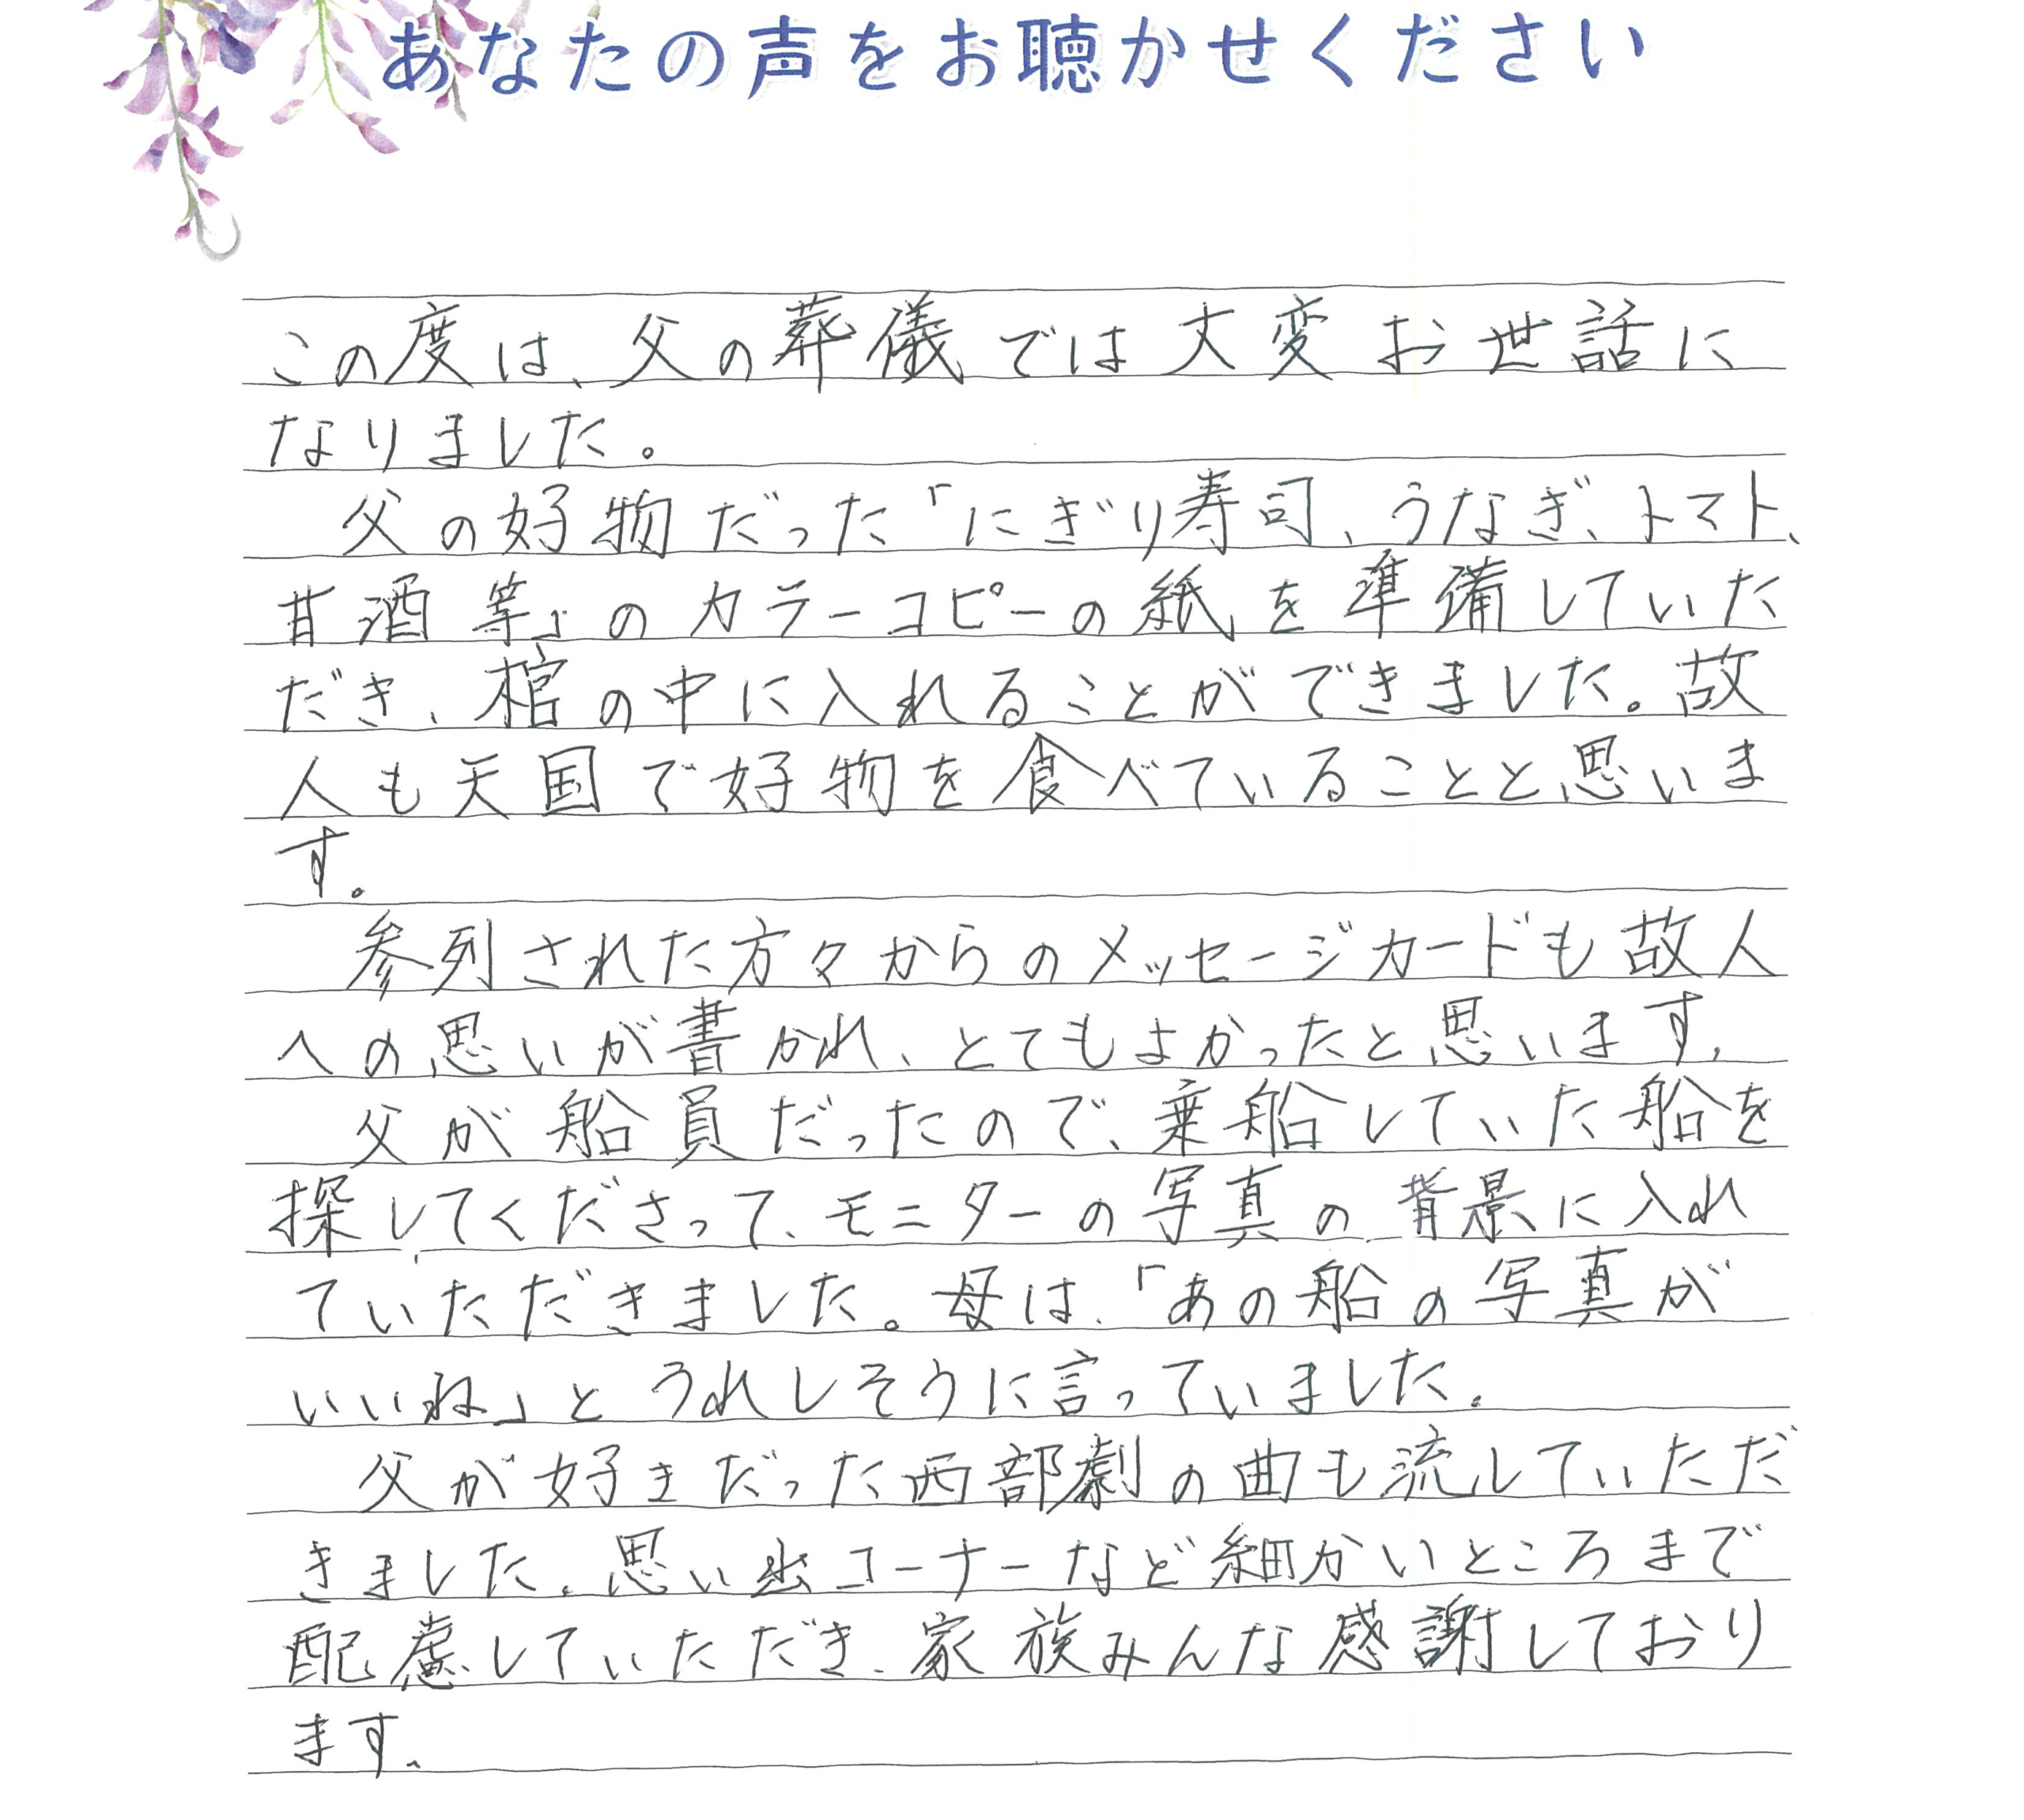 あなたの声をお聴かせください
この度は、父の葬儀では大変お世話に
なりました。
父の好物だった「にぎり寿司、うなぎ、トマト、
甘酒等」のカラーコピーの紙を準備していた
だき、棺の中に入れることができました。故
人も天国で好物を食べていることと思いま
す。
参列された方々からのメッセージカードも故人
への思いが書かれ、とてもよかったと思います。
父が船員だったので、乗船していた船を
探してくださって、モニターの写真の背景に入れ
ていただきました。母は、「あの船の写真が
いいね」とうれしそうに言っていました。
父が好きだった西部劇の曲も流していただ
きました。思い出コーナーなど細かいところまで
配慮していただき、家族みんな感謝しており
ます。